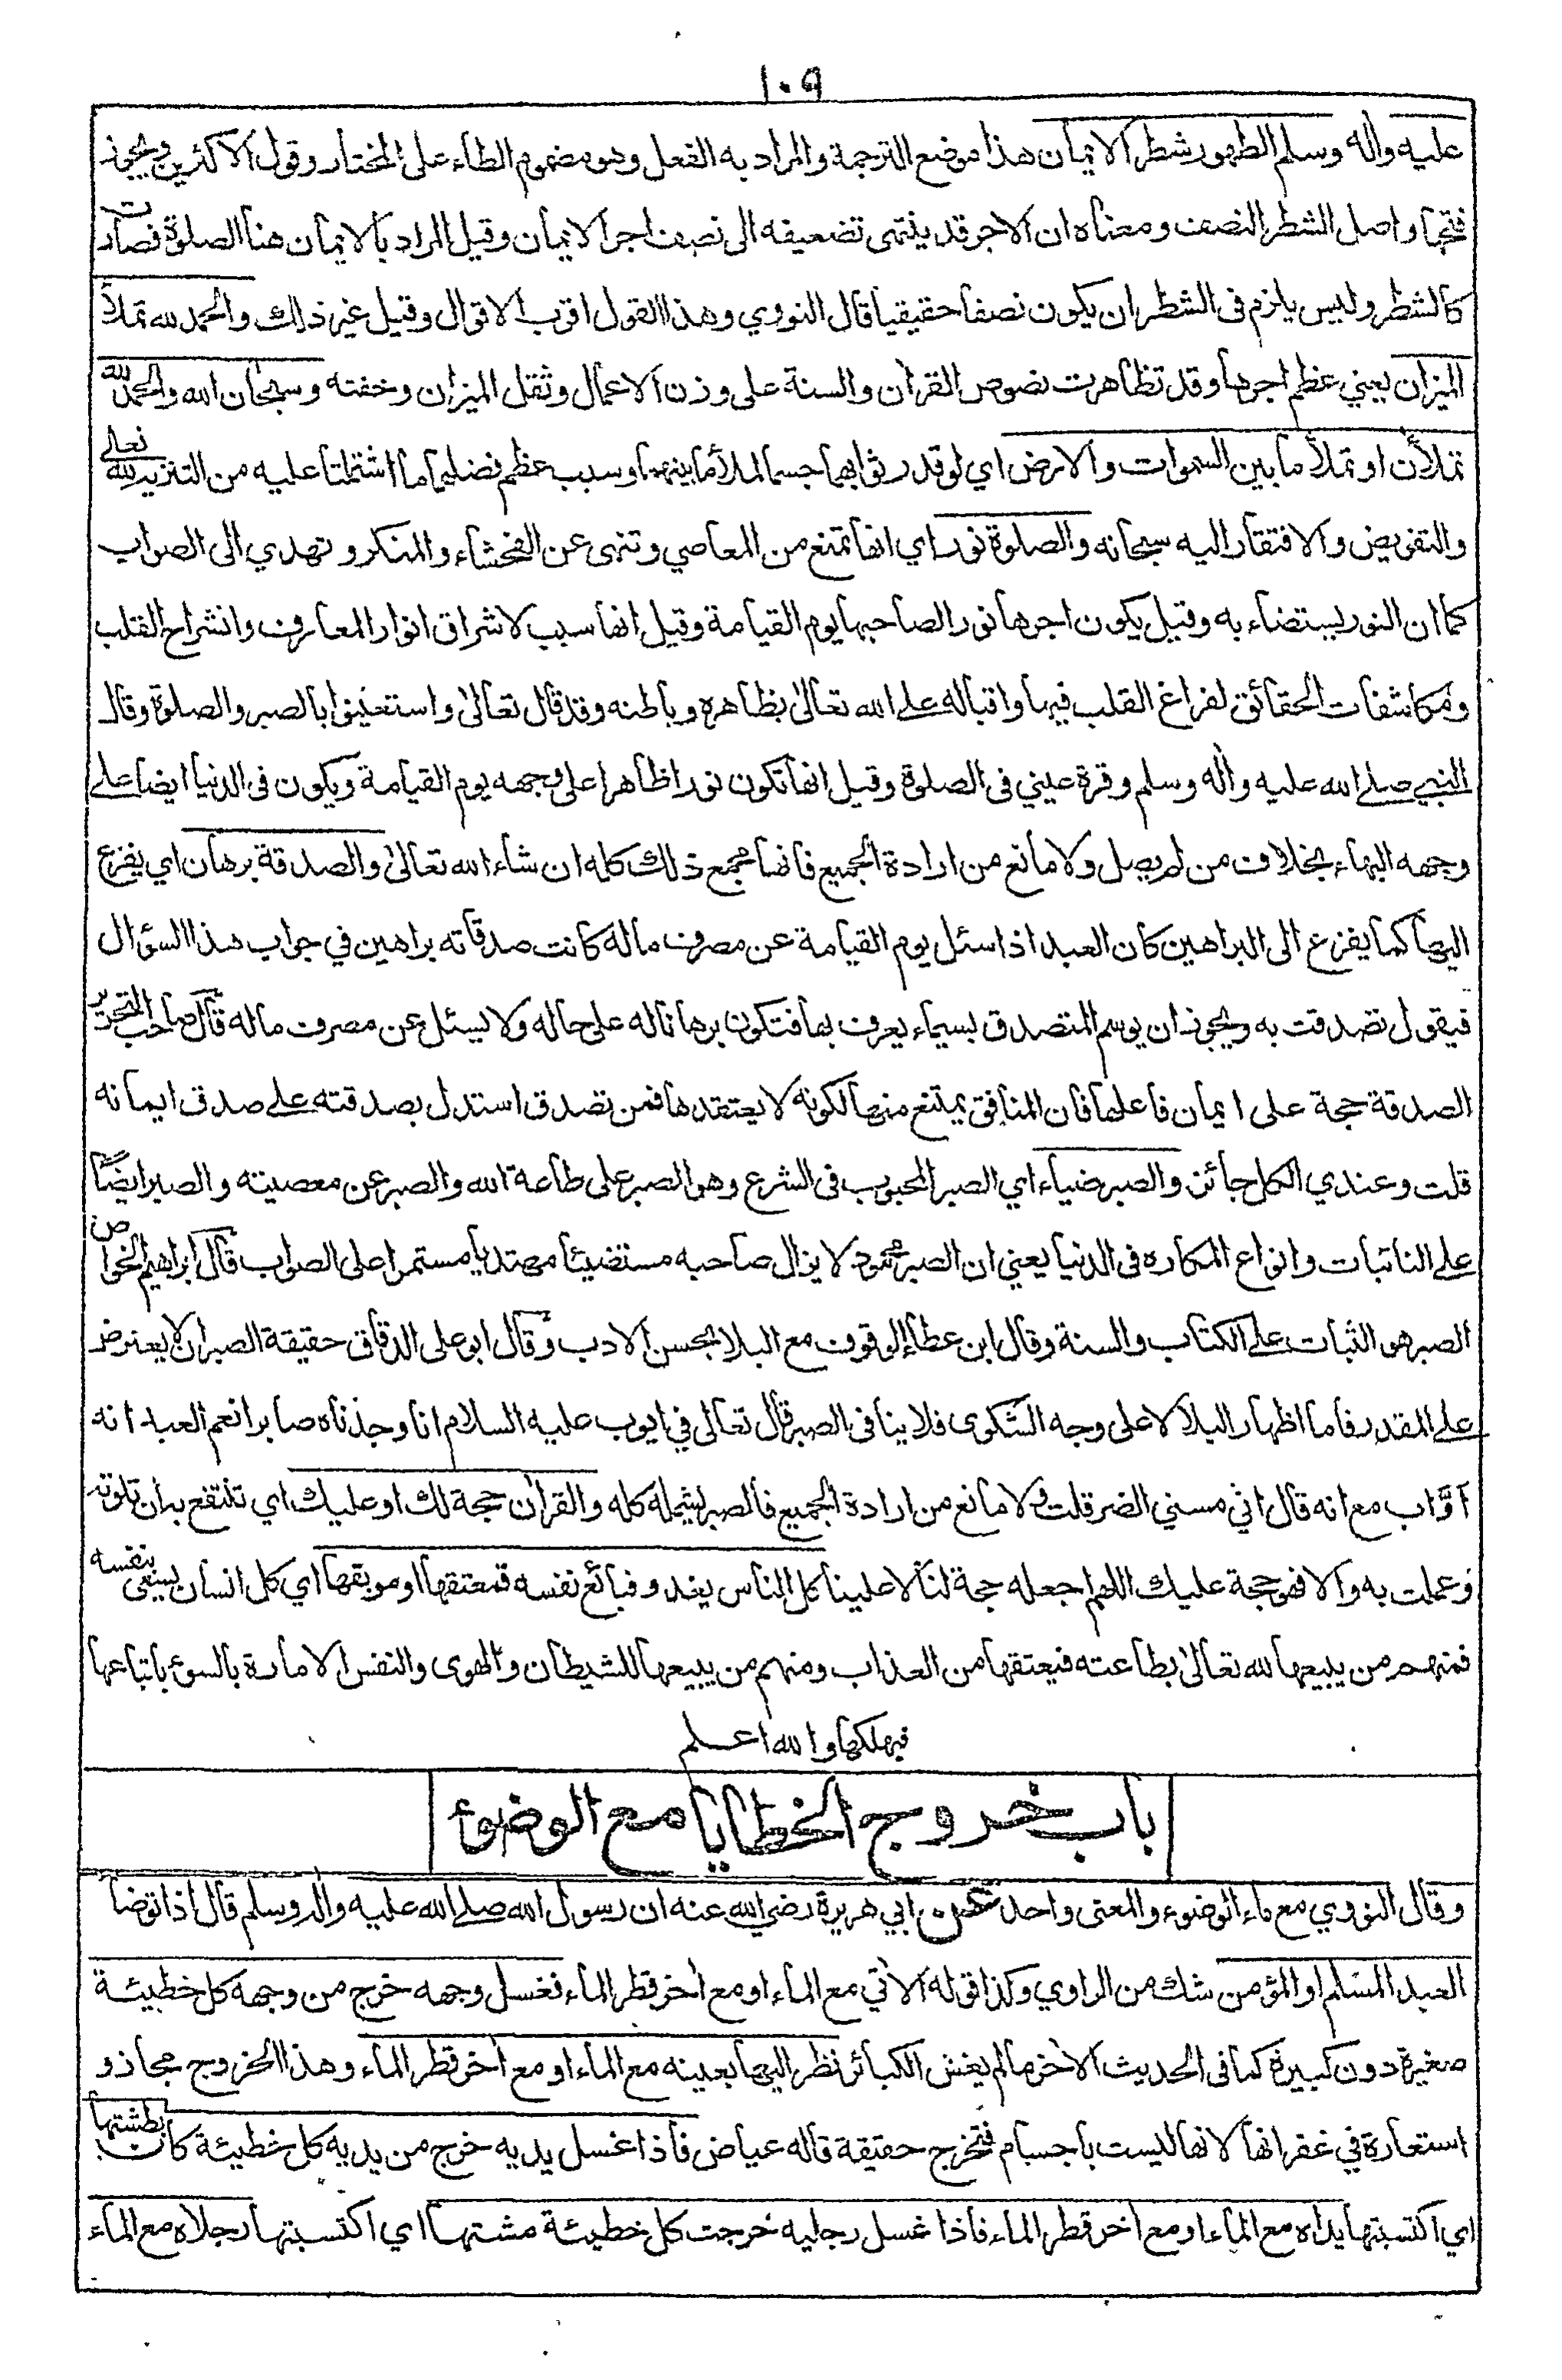 ١٠٩
عليه واٰله وسلم الطهور شطر الايمان هذا موضع الترجمة والمراد به الفعل وهو مضموم الطاء على المختار وقول الاكثرين ويجوز
فتحها واصل الشطر النصف ومعناه ان الاجر قد ينتهى تضعيفه الى نصف اجر الايمان وقيل المراد بالايمان هنا الصلوة فصارت
كالشطر وليس يلزم فى الشطر ان يكون نصفا حقيقيا قال النووي وهذا القول اقرب الاقوال وقيل غير ذلك والحمد لله تملأ
الميزان يعني عظم اجرها وقد تظاهرت نصوص القراٰن والسنة على وزن الاعمال وثقل الميزان وخفته وسبحان الله والحمد لله
تملأن او تملأ ما بين السموات والارض اي لو قدر ثوابهما جسما لملأ ما بينهما وسبب عظم فضلهما ما اشتملتا عليه من التنزيه لله تعالى
والتفويض والافتقار اليه سبحانه والصلوة نور اي انها تمنع من المعاصي وتنهى عن الفحشاء والمنكر وتهدي الى الصواب
كما ان النور يستضاء به وقيل يكون اجرها نورا لصاحبها يوم القيامة وقيل انها سبب لاشراق انوار المعارف وانشراح القلب
ومكاشفات الحقائق لفراغ القلب فيها واقباله على الله تعالىٰ بظاهره وباطنه وقد قال تعالىٰ واستعينوا بالصبر والصلوة وقال
النبي صلے الله عليه واٰله وسلم وقرة عيني فى الصلوة وقيل انها تكون نورا ظاهرا على وجهه يوم القيامة ويكون فى الدنيا ايضا على
وجهه البهاء بخلاف من لم يصل ولا مانع من ارادة الجميع فانها مجمع ذلك كله ان شاء الله تعالىٰ والصدقة برهان اي يفزع
اليها كما يفزع الى البراهين كان العبد اذا سئل يوم القيامة عن مصرف ماله كانت صدقاته براهين في جواب هذا السؤال
فيقول تصدقت به ويجوز ان يوسم المتصدق بسيماء يعرف بها فتكون برهانا له على حاله ولا يسئل عن مصرف ماله قال صاحب التحرير
الصدقة حجة على ايمان فاعلها فان المنافق يمتنع منها لكونه لا يعتقدها فمن تصدق استدل بصدقته على صدق ايمانه
قلت وعندي الكل جائز والصبر ضياء اي الصبر المحبوب فى الشرع وهو الصبر على طاعة الله والصبر عن معصيته والصبر ايضًا
على النائبات وانواع المكاره فى الدنيا يعني ان الصبر محمود لا يزال صاحبه مستضيئا مهتديا مستمرا على الصواب قال ابراهيم الخواص
الصبر هو الثبات على الكتاب والسنة وقال ابن عطاء الوقوف مع البلاء بحسن الادب وقال ابو على الدقاق حقيقة الصبر ان لا يعترض
على المقدر فاما اظهار البلاء لا على وجه الشكوى فلا ينافى الصبر قال تعالى في ايوب عليه السلام انا وجدناه صابرا نعم العبد انه
اوَّاب مع انه قال اني مسني الضر قلت ولا مانع من ارادة الجميع فالصبر يشمله كله والقراٰن حجة لك او عليك اي تنتفع به ان تلوته
وعملت به والا فهو حجة عليك اللهم اجعله حجة لنا لا علينا كل الناس يغدو فبائع نفسه فمعتقها او موبقها اي كل انسان يسعى بنفسه
فمنهم من يبيعها لله تعالىٰ بطاعته فيعتقها من العذاب ومنهم من يبيعها للشيطان والهوى والنفس الامارة بالسوء باتباعها
فيهلكها والله اعلم
باب خروج الخطايا مع الوضوء
وقال النووي مع ماء الوضوء والمعنى واحد عن ابي هريرة رضي الله عنه ان رسول الله صلے الله عليه واٰله وسلم قال اذا توضأ
العبد المسلم او المؤمن شك من الراوي وكذا قوله الاٰتي مع الماء او مع اٰخر قطر الماء فغسل وجهه خرج من وجهه كل خطيئة
صغيرة دون كبيرة كما فى الحديث الاٰخر ما لم يغش الكبائر نظر اليها بعينه مع الماء او مع اٰخر قطر الماء وهذا الخروج مجاز و
استعارة في غفرانها لانها ليست باجسام فتخرج حقيقة قاله عياض فاذا غسل يديه خرج من يديه كل خطيئة كان بطشتها
اي اكتسبتها يداه مع الماء او مع اٰخر قطر الماء فاذا غسل رجليه خرجت كل خطيئة مشتها اي اكتسبتها رجلاه مع الماء